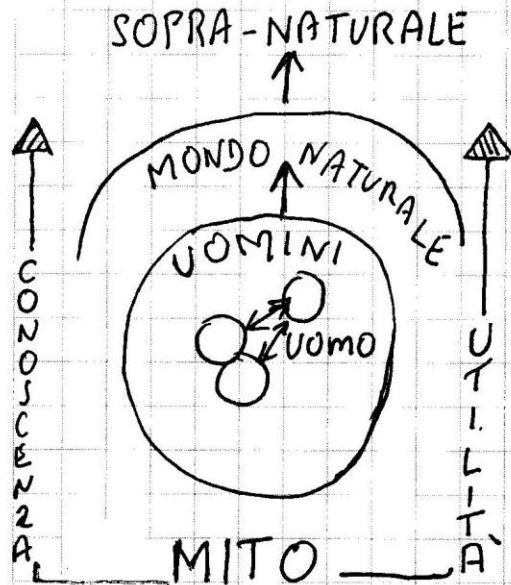 SOPRA-NATURALE
MONDO NATURALE
UOMINI
UOMO
CONOSCENZA
UTILITÀ
MITO